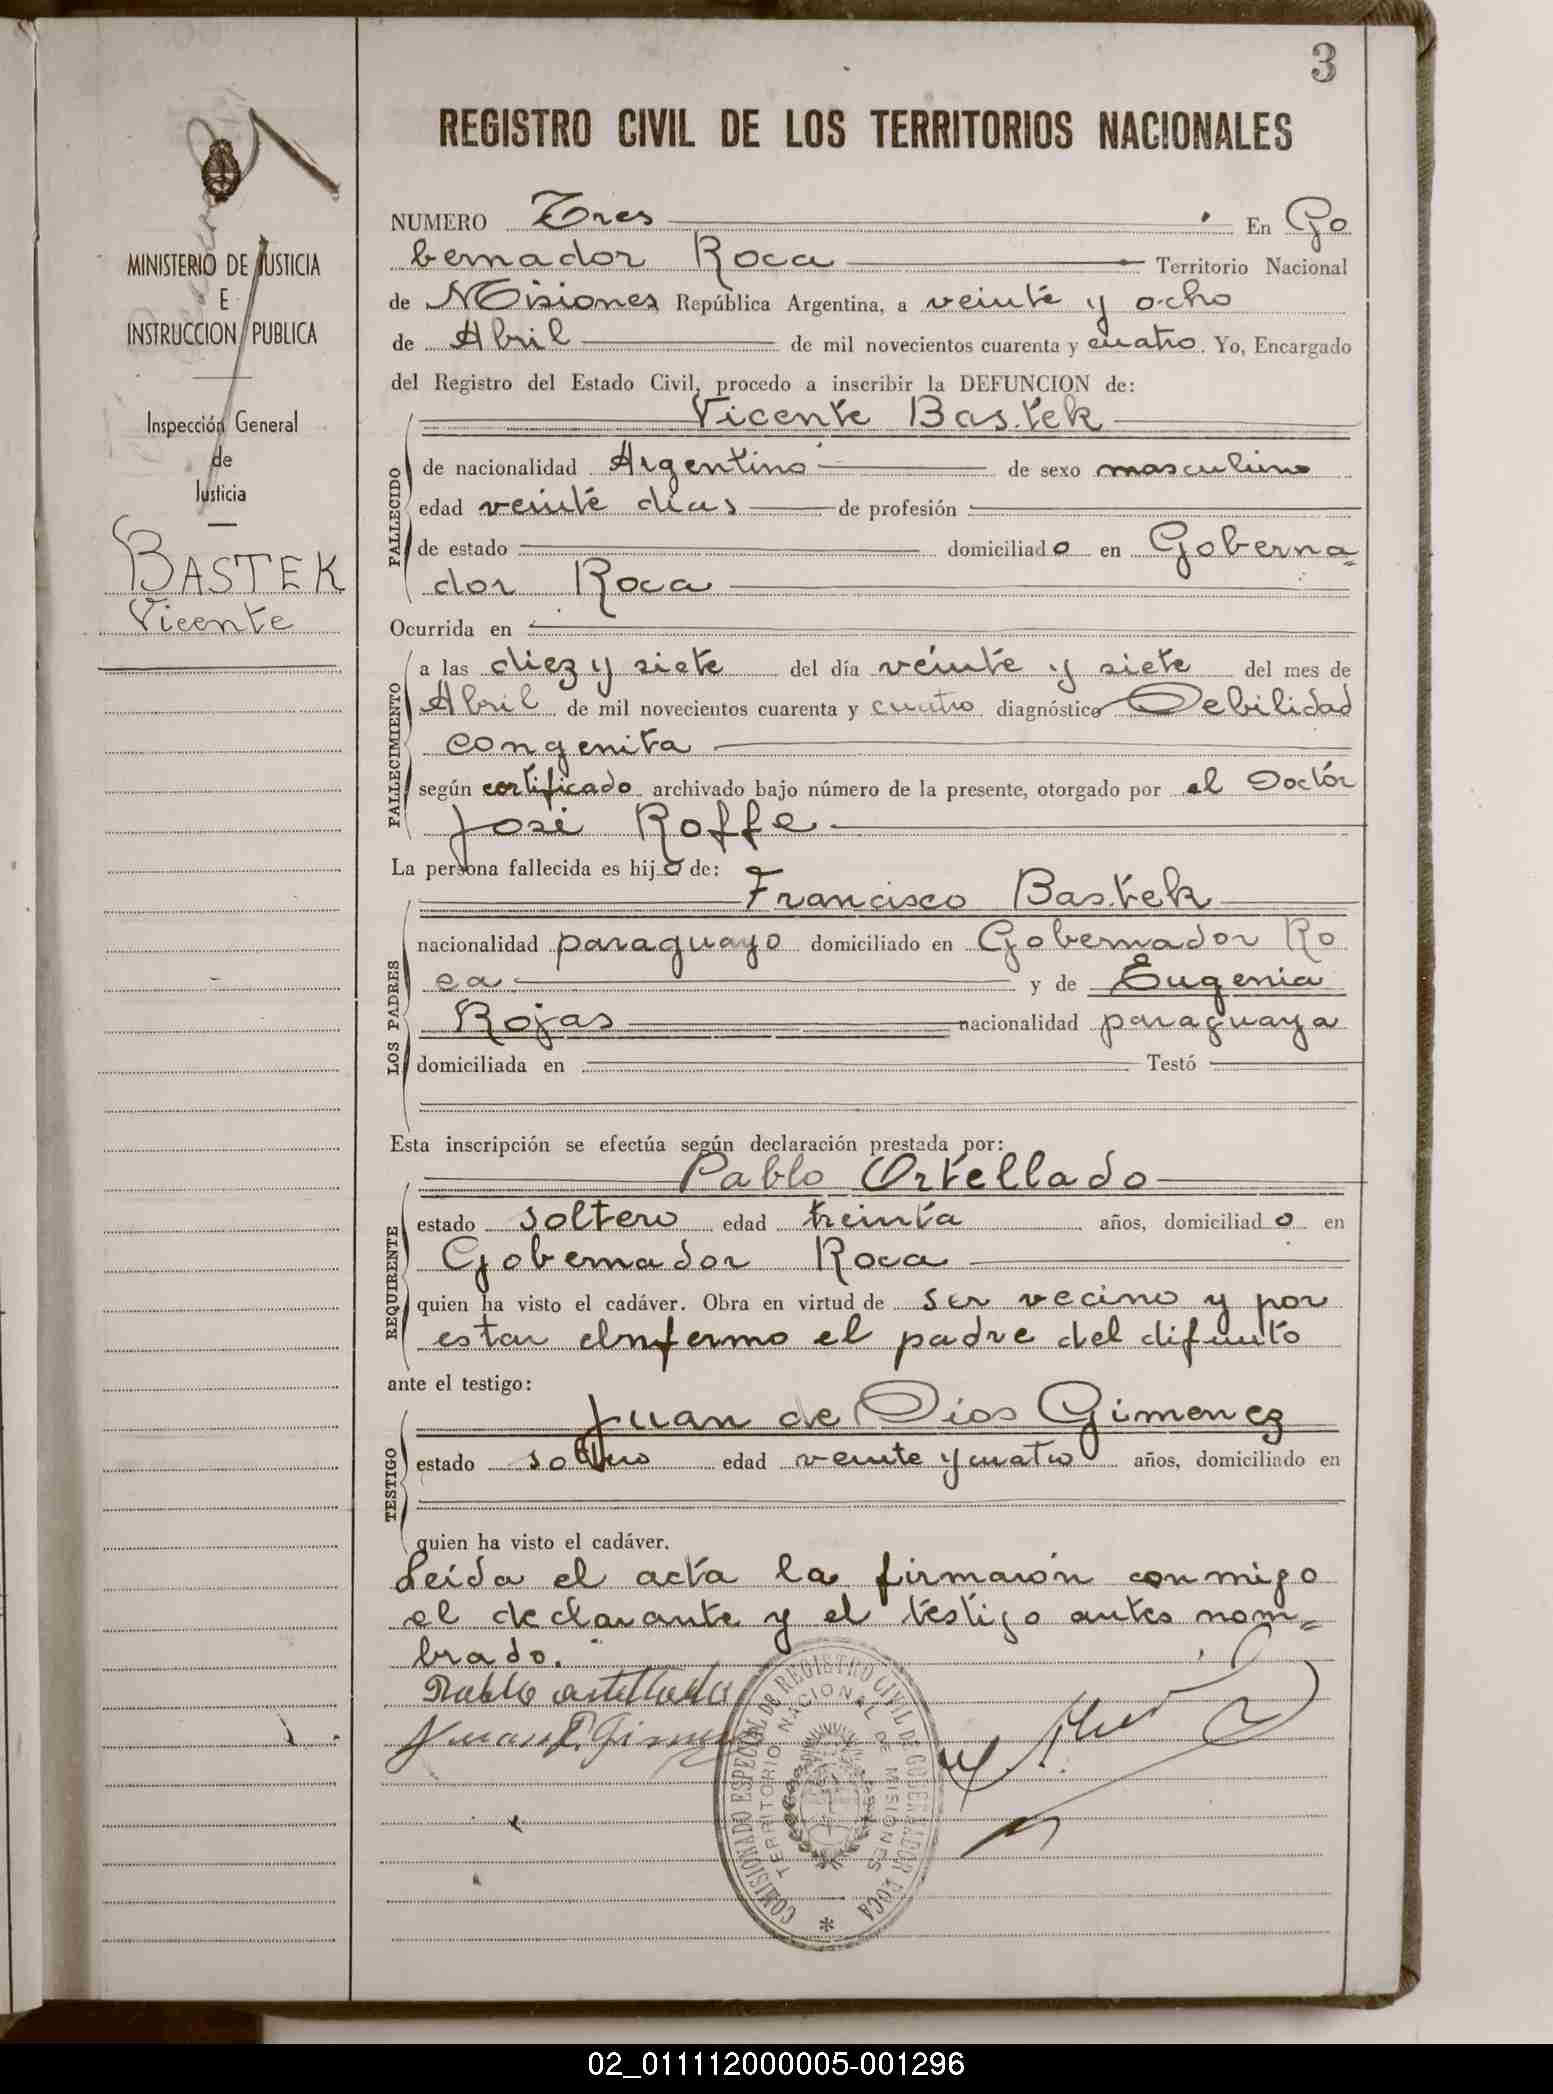 3
REGISTRO CIVIL DE LOS TERRITORIOS NACIONALES
MINISTERIO DE JUSTICIA
E
INSTRUCCION PUBLICA
Inspección General
de
Justicia
BASTEK
Vicente
NUMERO Tres En Go
bernador Roca Territorio Nacional
de Misiones República Argentina, a veinte y ocho
de Abril de mil novecientos cuarenta y cuatro. Yo, Encargado
del Registro del Estado Civil, procedo a inscribir la DEFUNCION de:
Vicente Bastek
FALLECIDO
de nacionalidad Argentino de sexo masculino
edad veinte dias de profesión
de estado domiciliado en Goberna=
dor Roca
Ocurrida en
FALLECIMIENTO
a las diez y siete del día veinte y siete del mes de
Abril de mil novecientos cuarenta y cuatro diagnóstico Debilidad
congenita
según certificado archivado bajo número de la presente, otorgado por el Doctór
José Roffe
La persona fallecida es hijo de:
Francisco Bastek
LOS PADRES
nacionalidad paraguayo domiciliado en Gobernador Ro
ca y de Eugenia
Rojas nacionalidad paraguaya
domiciliada en Testó
Esta inscripción se efectúa según declaración prestada por:
Pablo Ortellado
REQUIRENTE
estado soltero edad treinta años, domiciliado en
Gobernador Roca
quien ha visto el cadáver. Obra en virtud de ser vecino y por
estar enfermo el padre del difunto
ante el testigo:
Juan de Dios Gimenez
TESTIGO
estado soltero edad veinte y cuatro años, domiciliado en
quien ha visto el cadáver.
Leída el acta la firmarón conmigo
el declarante y el testigo antes nom=
brado.
Pablo Ortellado
Juan D. Gimenez
COMISIONADO ESPECIAL DE REGISTRO CIVIL DE GOBERNADOR ROCA
TERRITORIO NACIONAL DE MISIONES
*
02_011112000005-001296